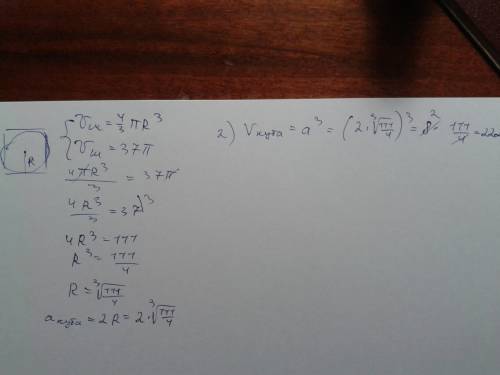 R
Vш = 4/3 πR³
Vш = 37π
4πR³/3 = 37π
4R³/3 = 37
4R³ = 111
R³ = 111/4
R = ³√(111/4)
a куба = 2R = 2·³√(111/4)
2) V куба = a³ = (2·³√(111/4))³ = 8· 111/4 =